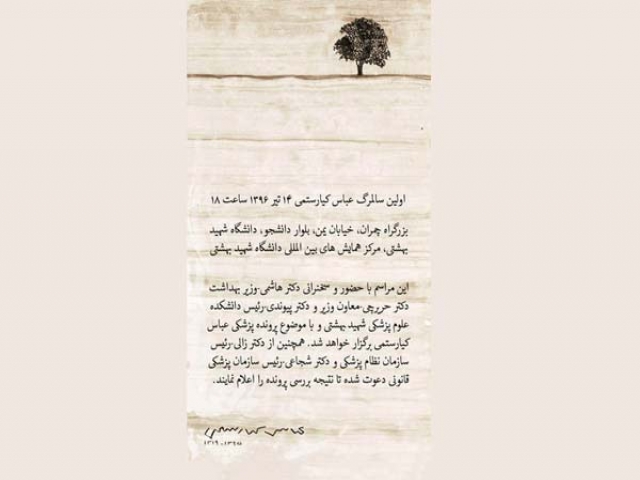 اولین سالمرگ عباس کیارستمی ۱۴ تیر ۱۳۹۶ ساعت ۱۸
بزرگراه چمران، خیابان یمن، بلوار دانشجو، دانشگاه شهید
بهشتی، مرکز همایش های بین المللی دانشگاه شهید بهشتی
این مراسم با حضور و سخنرانی دکتر هاشمی-وزیر بهداشت
دکتر حریرچی-معاون وزیر و دکتر پیوندی-رئیس دانشکده
علوم پزشکی شهید بهشتی و با موضوع پرونده پزشکی عباس
کیارستمی برگزار خواهد شد. همچنین از دکتر زالی-رئیس
سازمان نظام پزشکی و دکتر شجاعی-رئیس سازمان پزشکی
قانونی دعوت شده تا نتیجه بررسی پرونده را اعلام نمایند.
عباس کیارستمی